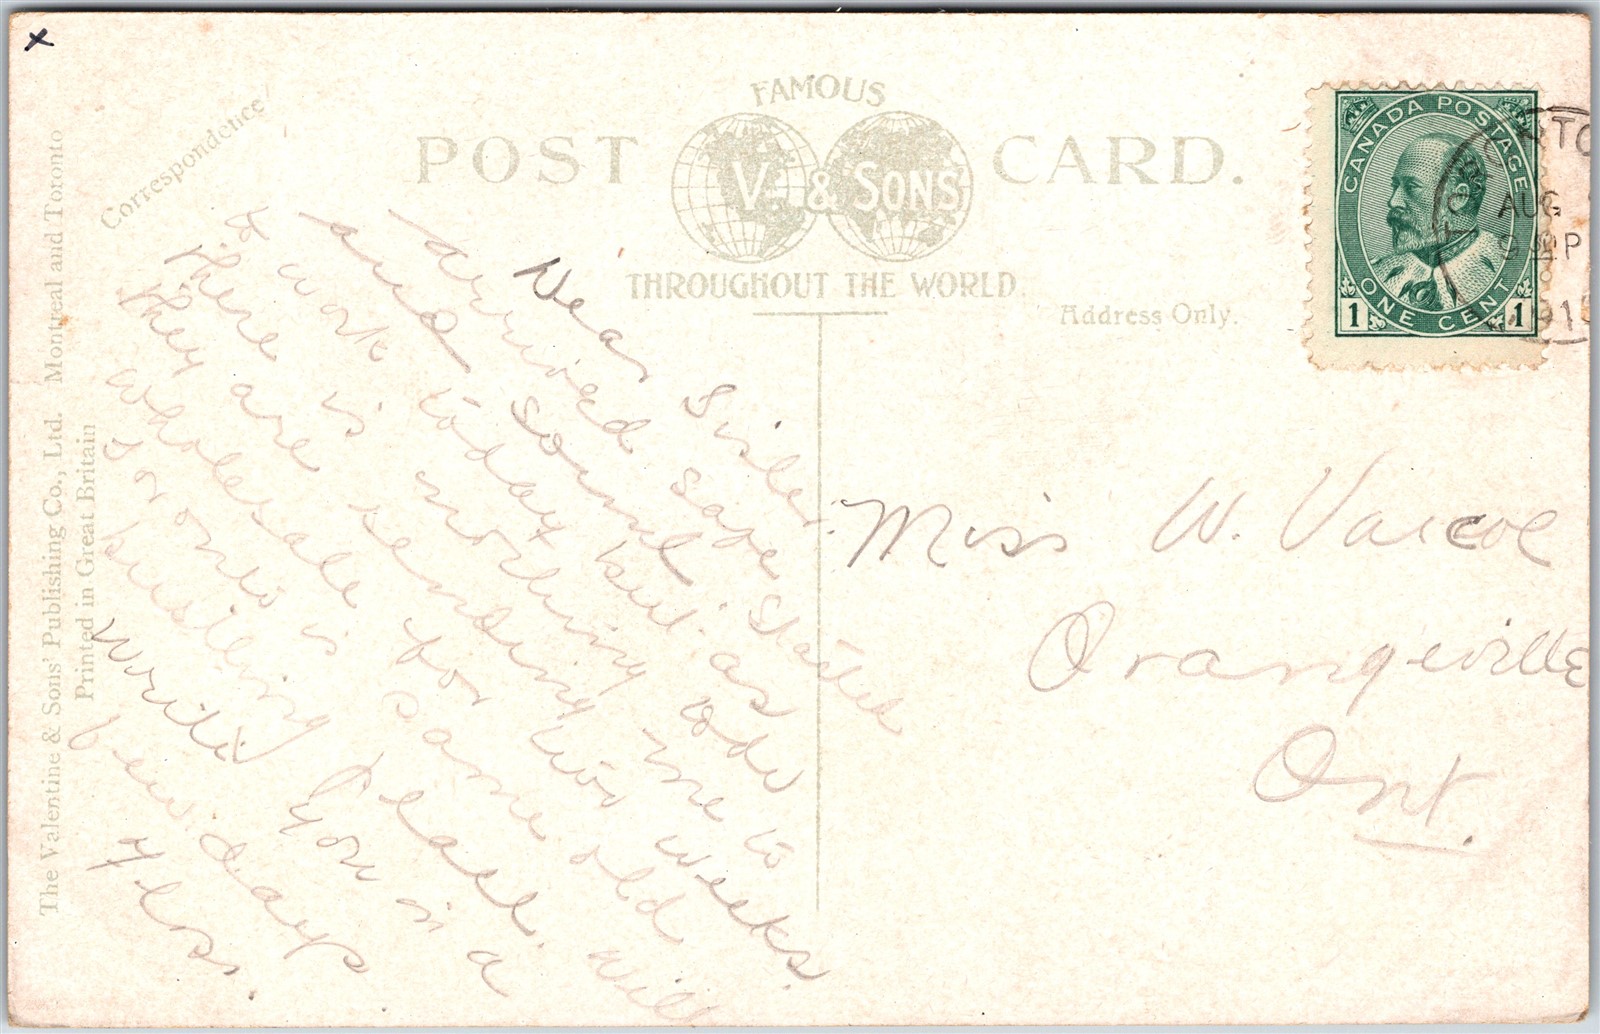 x
Correspondence
POST CARD.
FAMOUS
V. & SONS
THROUGHOUT THE WORLD
Address Only.
CANADA POSTAGE
ONE CENT
1 1
AUG
9 P
191
Dear Sister
arrived safe
and sound Started
to work today but as
there is nothing to do
they are sending me to
wholesale for two weeks.
Toronto is same old
bustling place. will
write you in a
few days
Yrs.
Miss W. Vascoe
Orangeville
Ont.
The Valentine & Sons' Publishing Co., Ltd. Montreal and Toronto
Printed in Great Britain